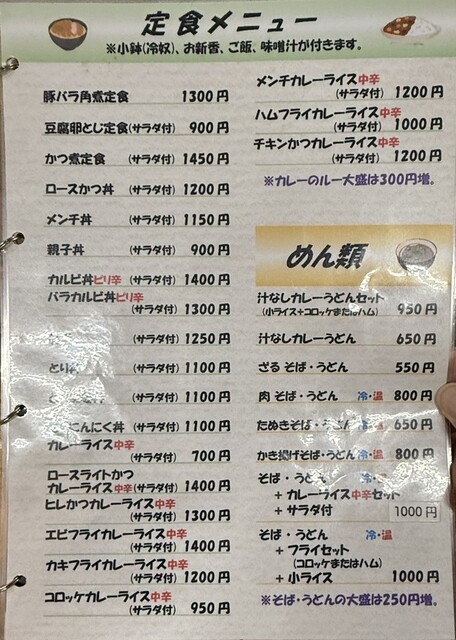 定食メニュー
※小鉢(冷奴)、お新香、ご飯、味噌汁が付きます。
豚バラ角煮定食 1300円
豆腐卵とじ定食(サラダ付) 900円
かつ煮定食 (サラダ付) 1450円
ロースかつ丼 (サラダ付) 1200円
メンチ丼 (サラダ付) 1150円
親子丼 (サラダ付) 900円
カルビ丼ピリ辛 (サラダ付) 1400円
バラカルビ丼ピリ辛
(サラダ付) 1300円
(サラダ付) 1250円
(サラダ付) 1100円
(サラダ付) 1100円
にんにく丼 (サラダ付) 1100円
カレーライス中辛
(サラダ付) 700円
ロースライトかつ
カレーライス中辛(サラダ付) 1400円
ヒレかつカレーライス中辛
(サラダ付) 1300円
エビフライカレーライス中辛
(サラダ付) 1400円
カキフライカレーライス中辛
(サラダ付) 1200円
コロッケカレーライス中辛
(サラダ付) 950円
メンチカレーライス中辛
(サラダ付) 1200円
ハムフライカレーライス中辛
(サラダ付) 1000円
チキンかつカレーライス中辛
(サラダ付) 1200円
※カレーのルー大盛は300円増。
めん類
汁なしカレーうどんセット
(小ライス+コロッケまたはハム) 950円
汁なしカレーうどん 650円
ざる そば・うどん 550円
肉 そば・うどん 冷・温 800円
たぬきそば・うどん 冷・温 650円
かき揚げそば・うどん 冷・温 800円
そば・うどん 冷・温
+ カレーライス中辛セット
+ サラダ付 1000円
そば・うどん 冷・温
+ フライセット
(コロッケまたはハム)
+ 小ライス 1000円
※そば・うどんの大盛は250円増。